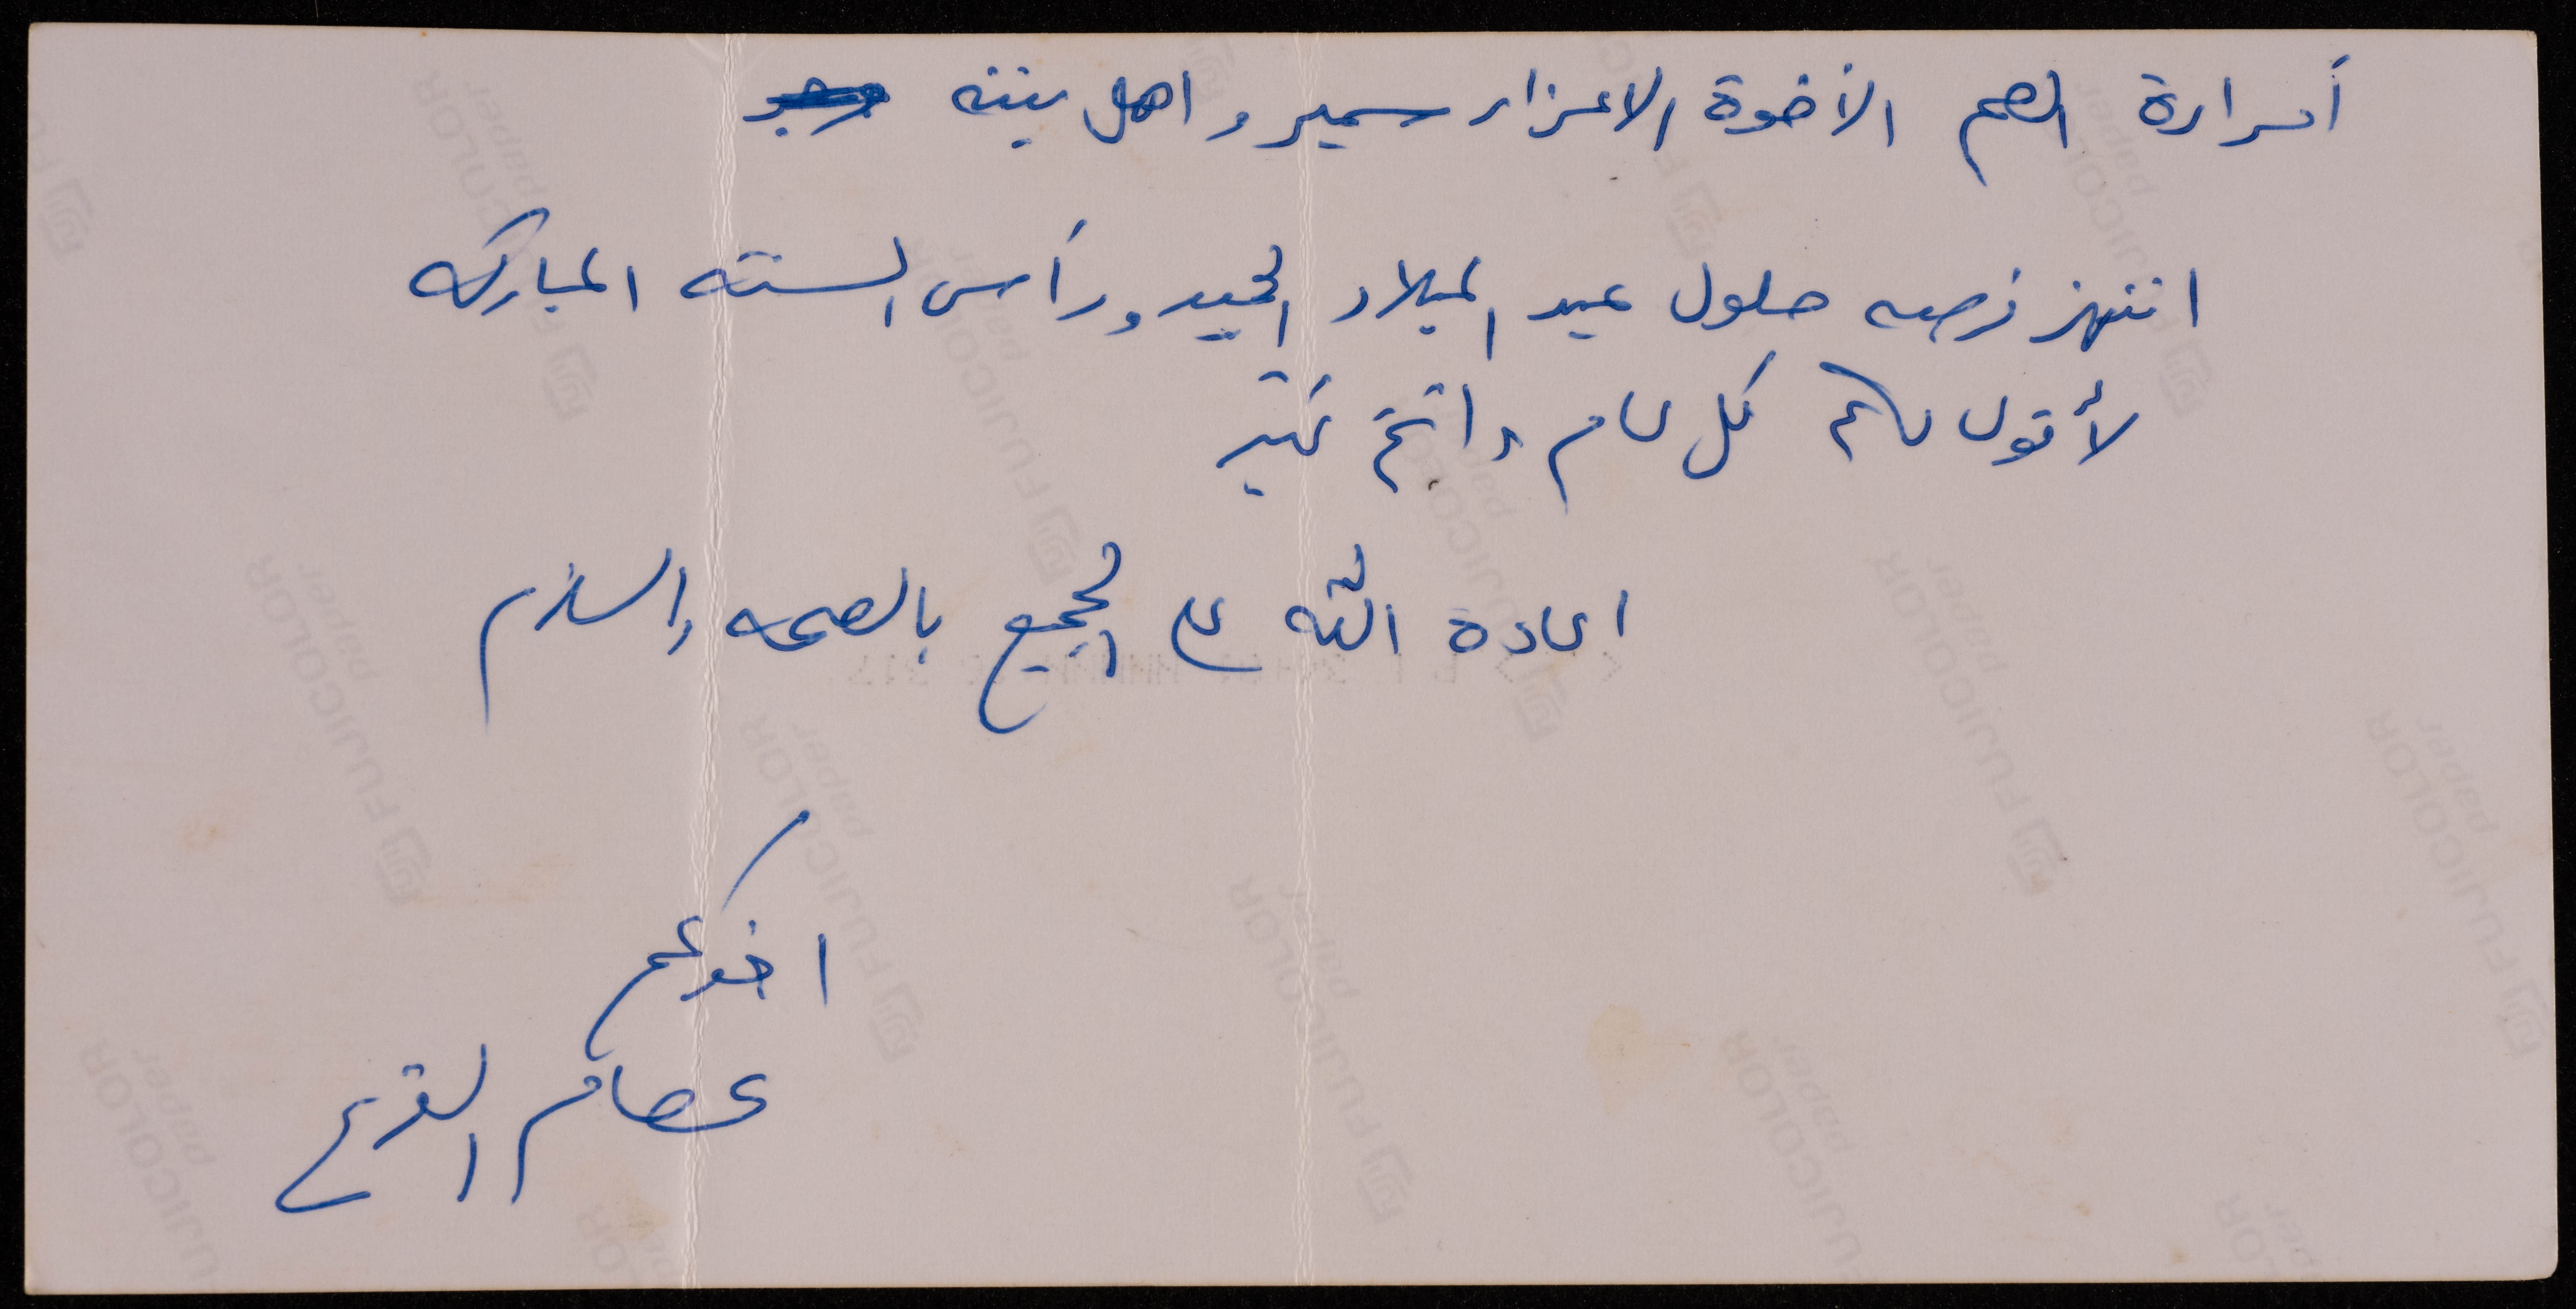 الأخوة الاعزاء سمير واهل بيته
انتهز فرصه حلول عيد الميلاد المجيد ورأس السنه المباركه
لأقول لكم كل عام وانتم بخير
اعاده الله على الجميع بالصحه والسلام
اخوكم
عصام
FUJICOLOR
paper